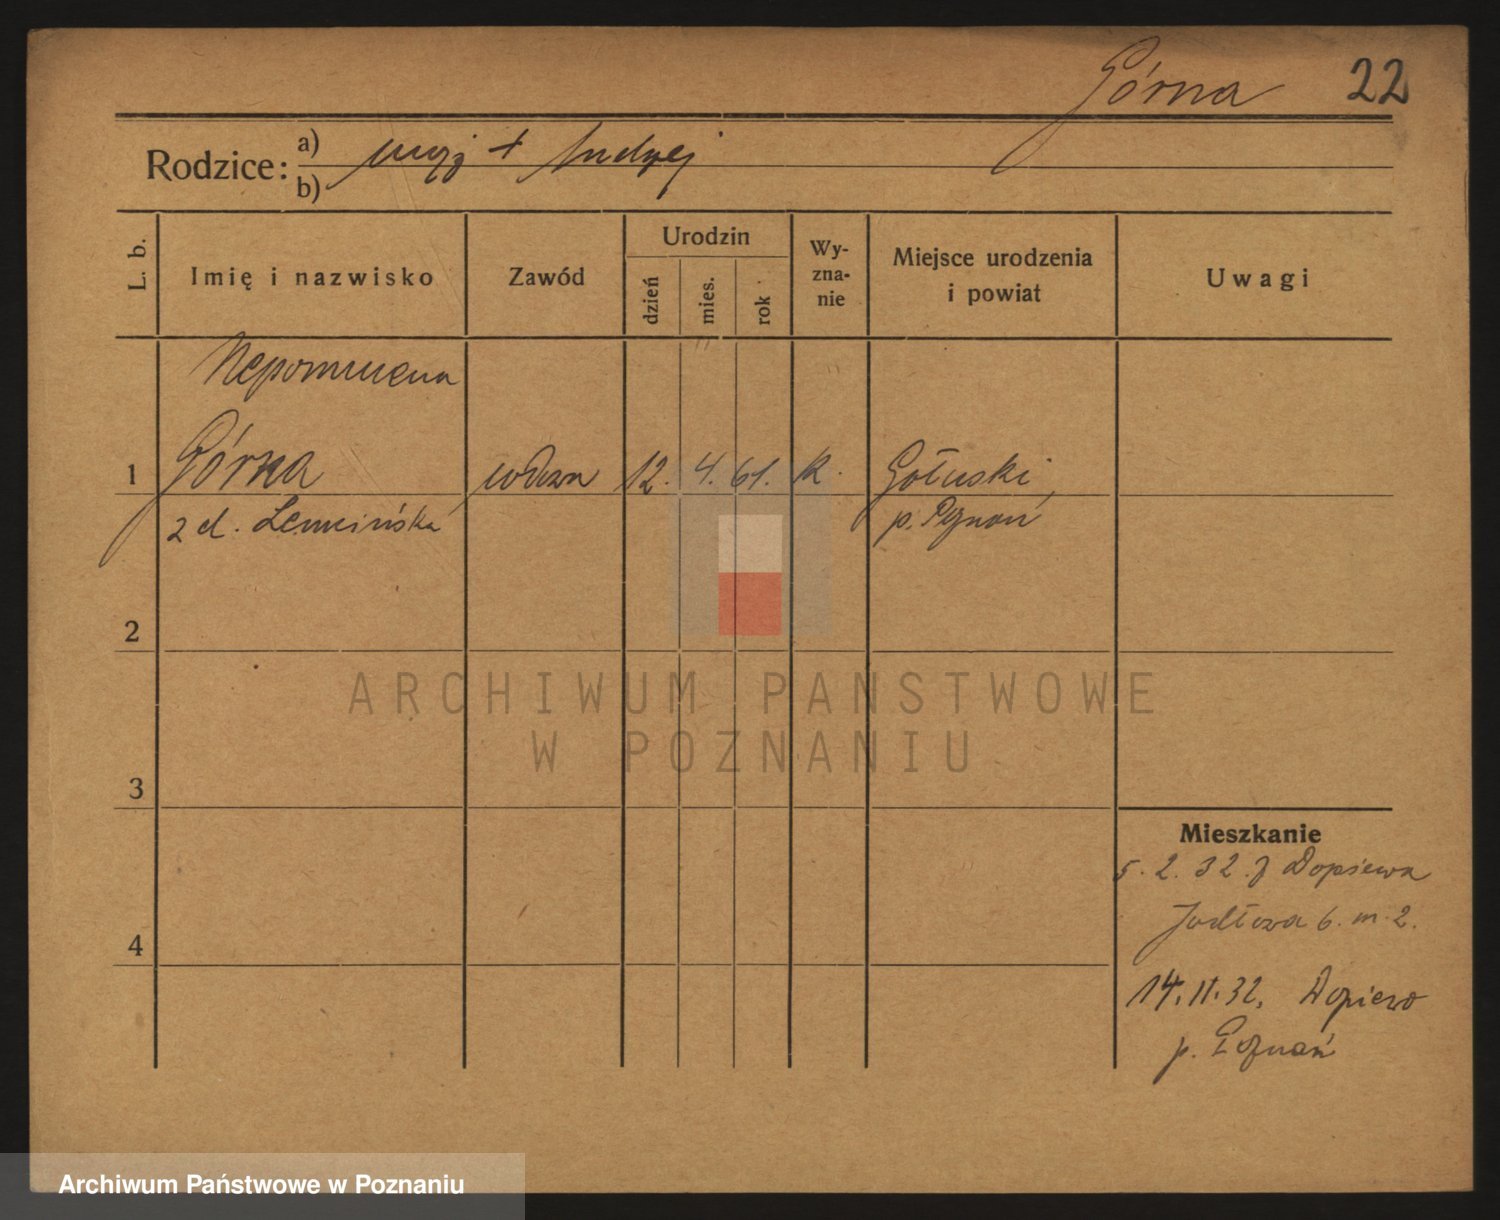 Górna 22
Rodzice:
a) mąż + Andrzej
b)
L. b.
Imię i nazwisko
Zawód
Urodzin
dzień
mies.
rok
Wy-
zna-
nie
Miejsce urodzenia
i powiat
Uwagi
Nepomucena
1 Górna wdowa 12. 4. 61. k. Gołuski,
z d. p. Poznań
2
3
4
Mieszkanie
5. 2. 32. z Dopiewa
6. m. 2.
14. 11. 32, Dopiewo
p. Poznań
ARCHIWUM PAŃSTWOWE
W POZNANIU
Archiwum Państwowe w Poznaniu